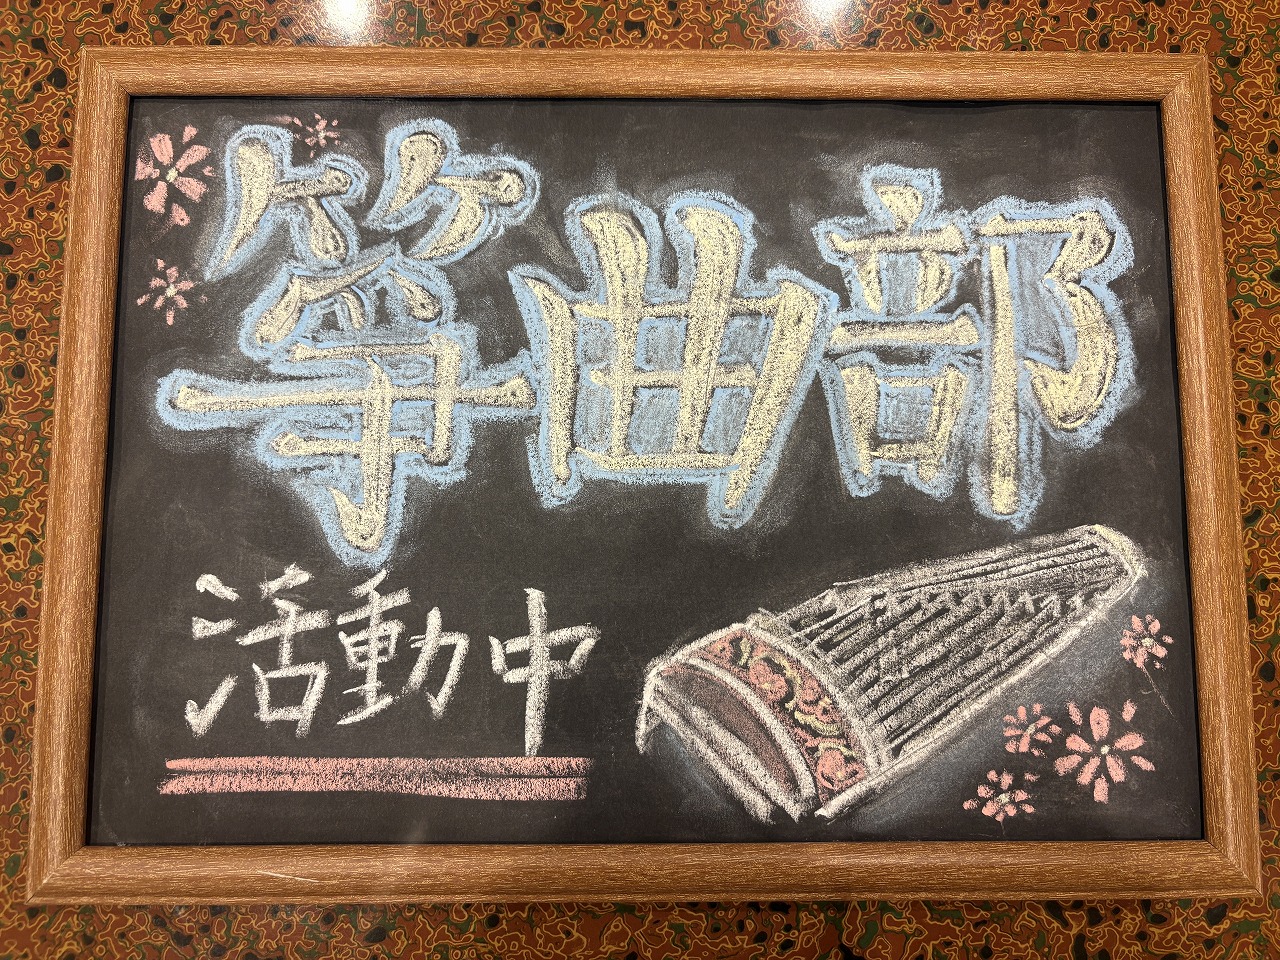 箏曲部
活動中